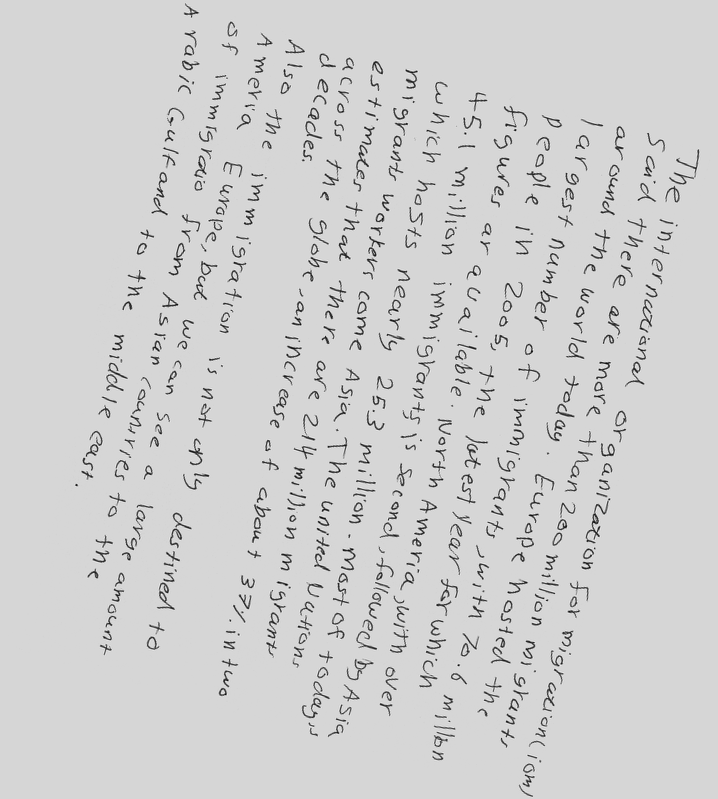 The international organization for migration (iom)
Said there are more than 200 million migrants
around the world today. Europe hosted the
largest number of immigrants, with 70.6 million
people in 2005, the latest year for which
figures ar available. North Ameria, with over
45.1 million immigrants is second, followed by Asia
which hosts nearly 25.3 million. most of todays
migrants workers come Asia. The united Nations
estimates that there are 214 million migrants
across the globe, an increase of about 37% in two
decades.
Also the immigration is not only destined to
Ameria Europe, but we can see a large amount
of immigratio from Asian countries to the
Arabic Gulf and to the middle east.